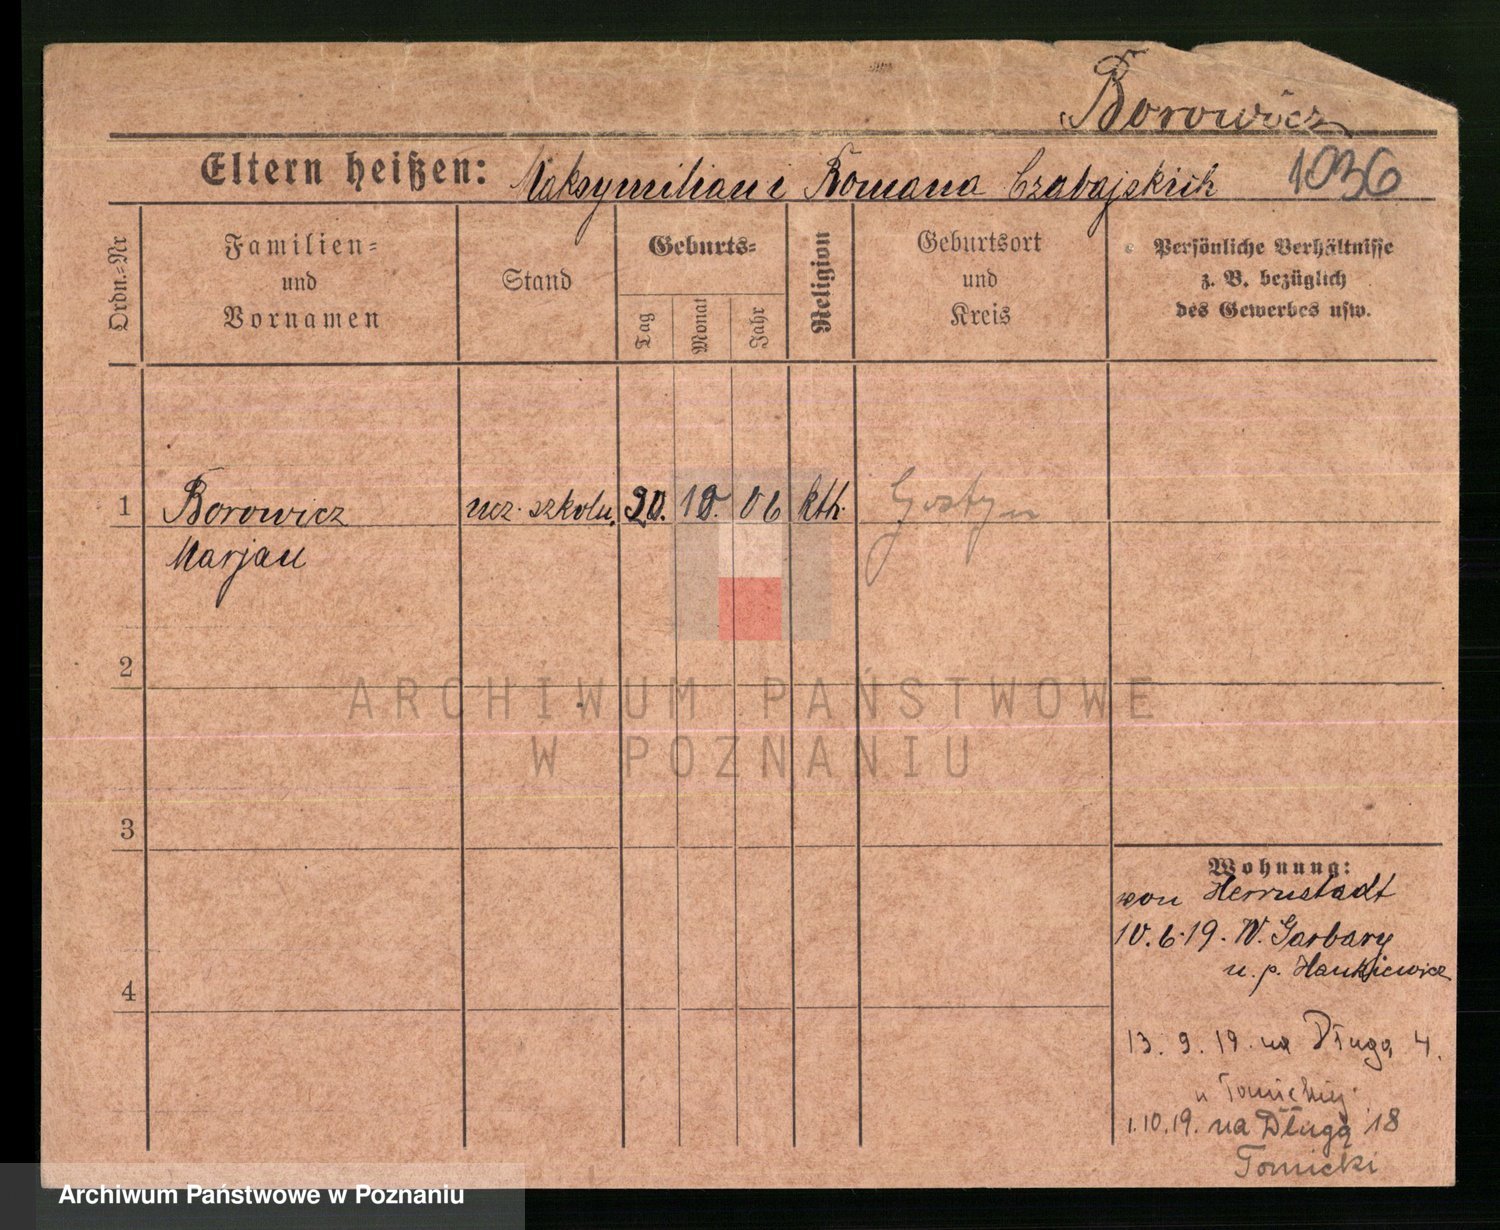 Borowicz
Eltern heißen: Maksymilian i Romana Czabajskich 1036
Ordn.=Nr
Familien=
und
Vornamen
Stand
Geburts=
Tag
Monat
Jahr
Religion
Geburtsort
und
Kreis
Persönliche Verhältnisse
z. B. bezüglich
des Gewerbes usw.
1 Borowicz ucz. szkoln. 20. 10. 06 kth. Gostyn
Marjan
2
ARCHIWUM PAŃSTWOWE
W POZNANIU
3
Wohnung:
von Herrnstadt
10.6.19. W. Garbary
u. p. Hankiewicz
4
13. 9. 19. na Długą 4.
u Tomickiej
1.10.19. na Długą 18
Tomicki
Archiwum Państwowe w Poznaniu